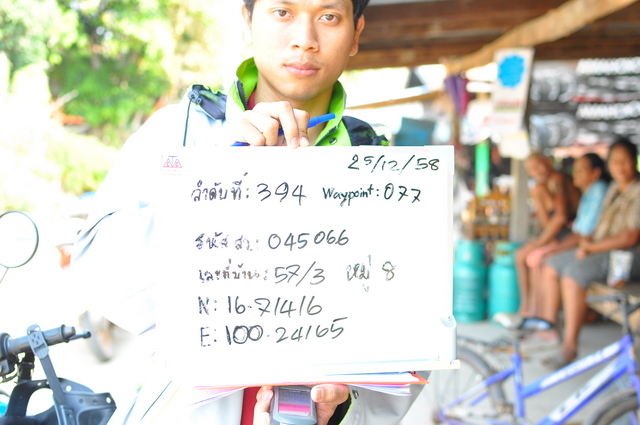 25/12/58
ลำดับที่: 394 Waypoint: 077
รหัส สว.: 045066
เลขที่บ้าน: 57/3 หมู่ 8
N: 16.71416
E: 100.24165